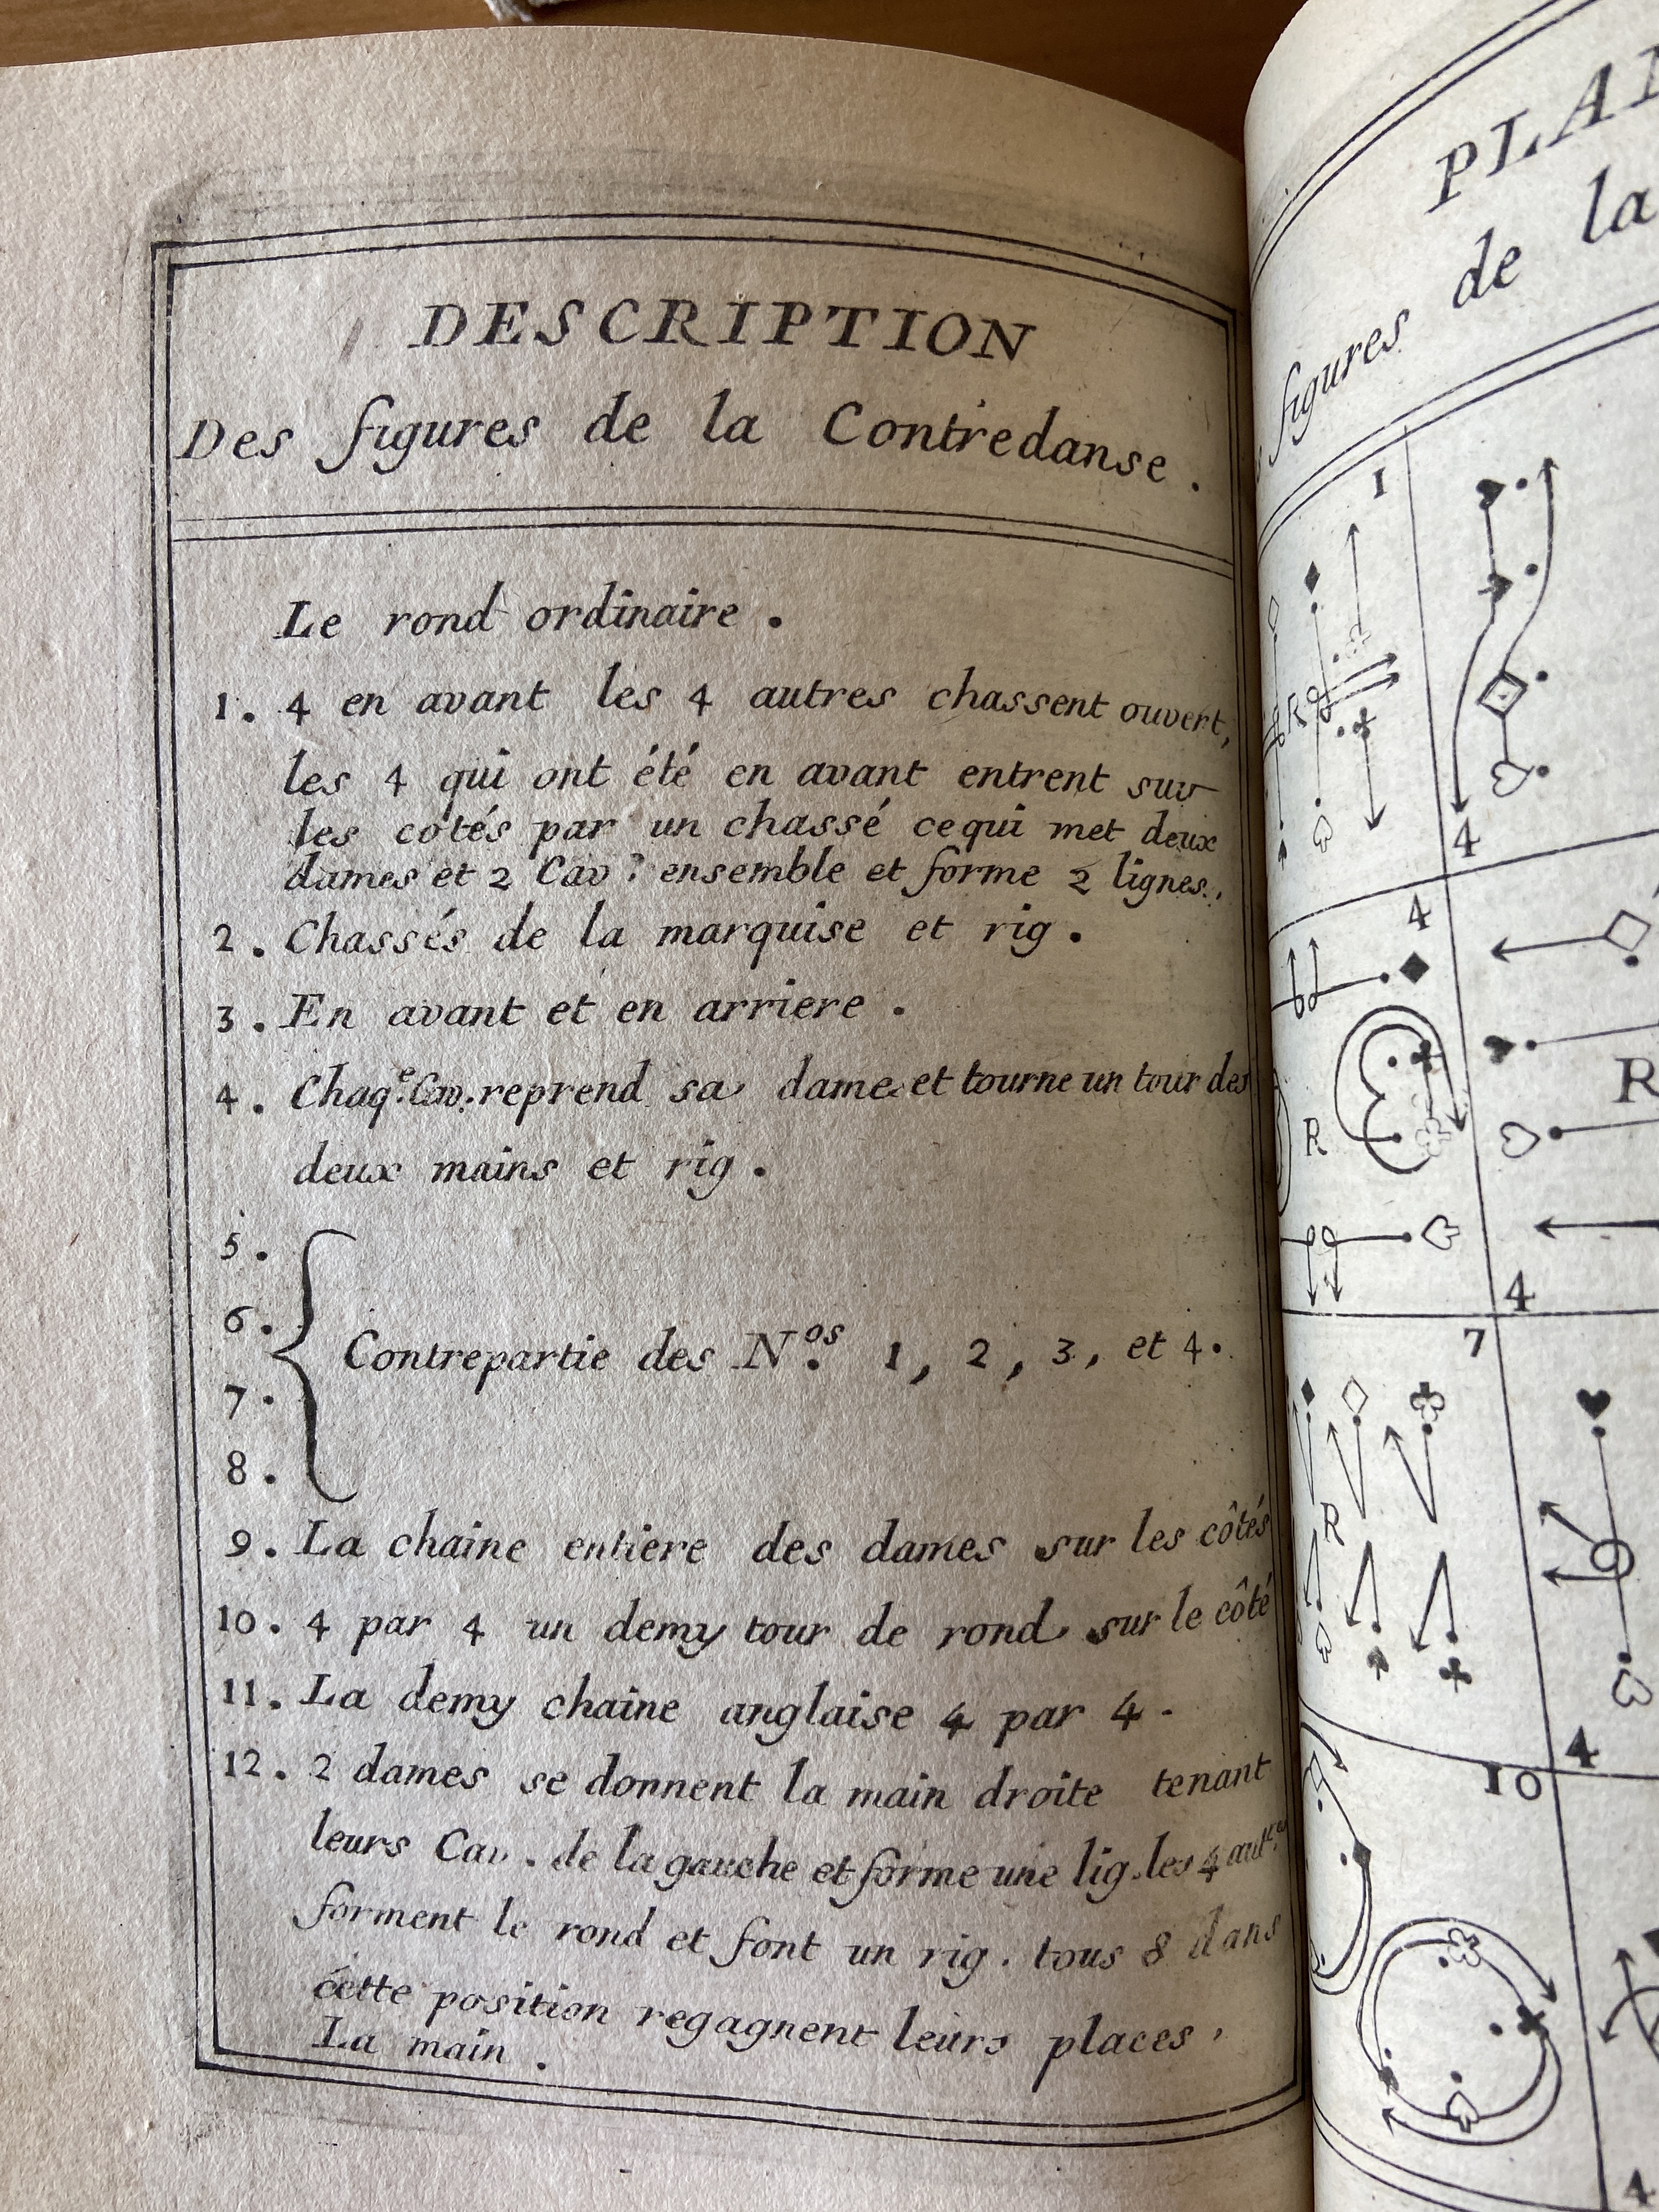 DESCRIPTION
Des figures de la Contredanse.
Le rond ordinaire.
1. 4 en avant les 4 autres chassent ouvert,
les 4 qui ont été en avant entrent sur
les cotés par un chassé cequi met deux
dames et 2 Cav.^s ensemble et forme 2 lignes.
2. Chassés de la marquise et rig.
3. En avant et en arriere.
4. Chaq.^e Cav. reprend sa dame et tourne un tour des
deux mains et rig.
5.
6.
Contrepartie des N.^os 1, 2, 3, et 4.
7.
8.
9. La chaine entiere des dames sur les côtés
10. 4 par 4 un demy tour de rond sur le côté
11. La demy chaine anglaise 4 par 4.
12. 2 dames se donnent la main droite tenant
leurs Cav. de la gauche et forme une lig. les 4 aut.^es
forment le rond et font un rig. tous 8 dans
cette position regagnent leurs places.
La main.
PLAN
figures de la
1
4
4
R
R
4
7
R
4
10
4